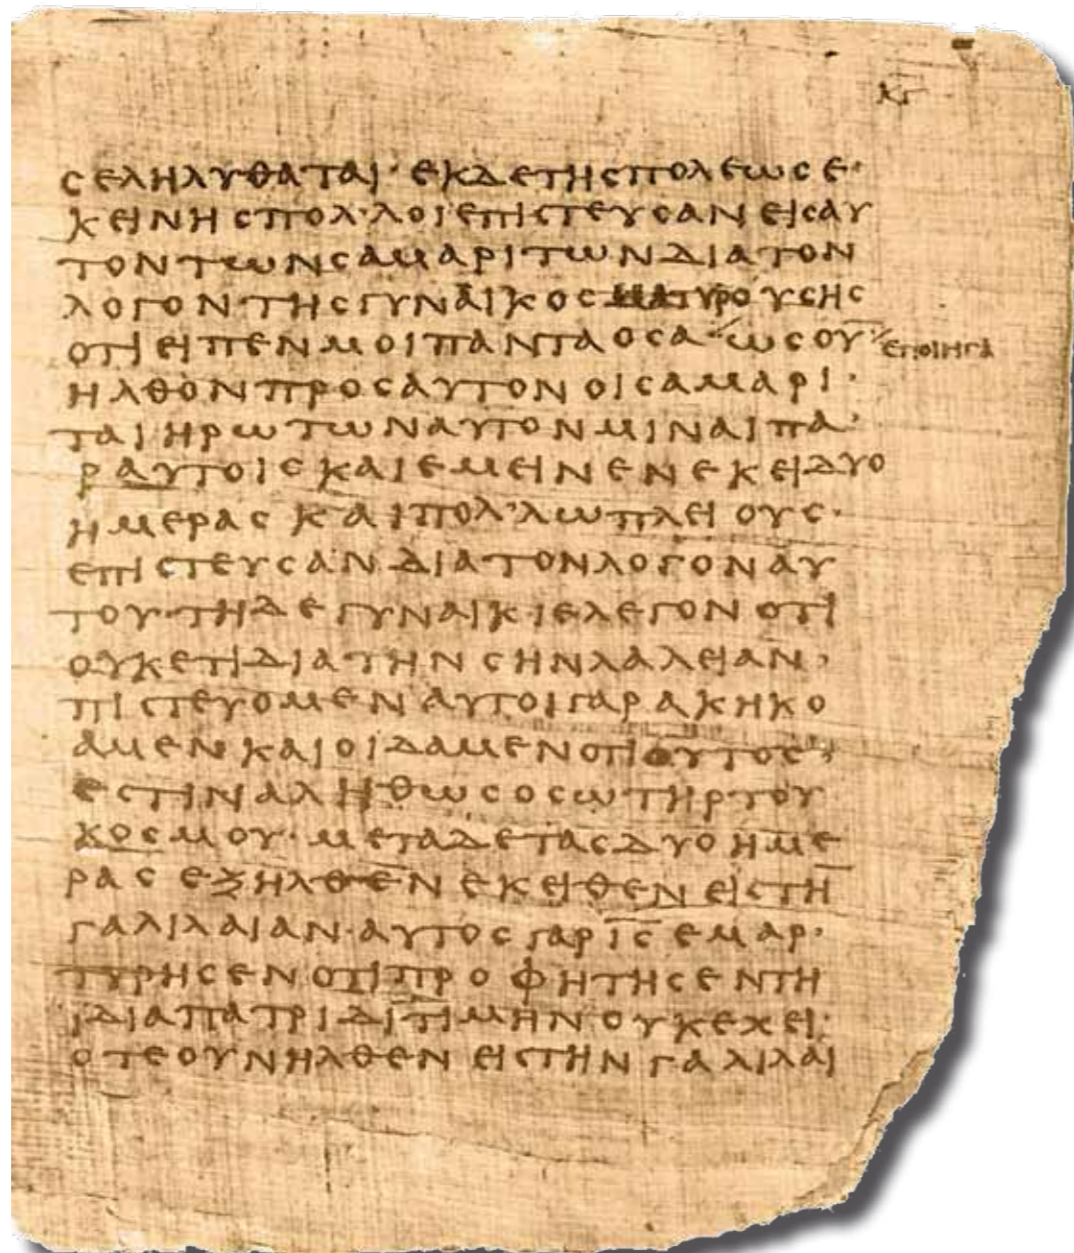 κγ
ϲεληλυθαται· εκδετηϲπολεωϲε·
κεινηϲπολ'λοιεπιϲτευϲανειϲαυ
τοντωνϲαμαριτωνδιατον
λογοντηϲγυναικοϲματυρουϲηϲ
οτιειπενμοιπανταοϲα ωϲου·
εποιηϲα
ηλθονπροϲαυτονοιϲαμαρι·
ταιηρωτωναυτονμιναιπα·
ραυτοιϲκαιεμεινενεκειδυο
ημεραϲκαιπολ'λωπλειουϲ·
επιϲτευϲανδιατονλογοναυ
του·τηδεγυναικιελεγονοτι
ουκετιδιατηνϲηνλαλειαν,
πιϲτευομεναυτοιγαρακηκο
αμενκαιοιδαμενοτιουτοϲ,
εϲτιναληθωϲοϲωτηρτου
κοϲμου·μεταδεταϲδυοημε
ραϲεξηλθενεκειθενειϲτη̅
γαλιλαιαν·αυτοϲγαρι̅ϲ̅εμαρ·
τυρηϲενοτιπροφητηϲεντη
ιδιαπατριδιτιμηνουκεχει·
οτεουνηλθενειϲτηνγαλιλαι